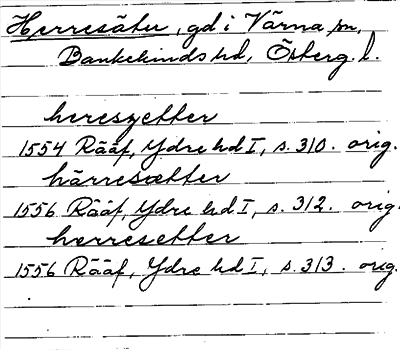 Herresäter, gd i Värna sn,
Bankekinds hd, Österg. l.
hereszetter
1554 Rääf, Ydre hd I, s. 310. orig.
härresætter
1556 Rääf, Ydre hd I, s. 312. orig.
herresetter
1556 Rääf, Ydre hd I, s. 313. orig.